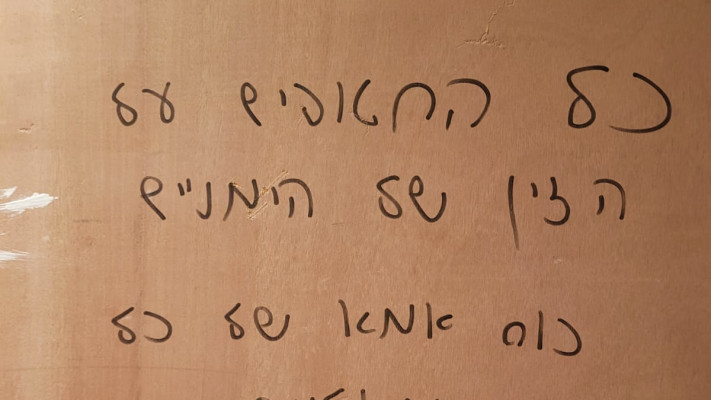 כל החאפים על
הזין של הימניים
כוס אמא של כל